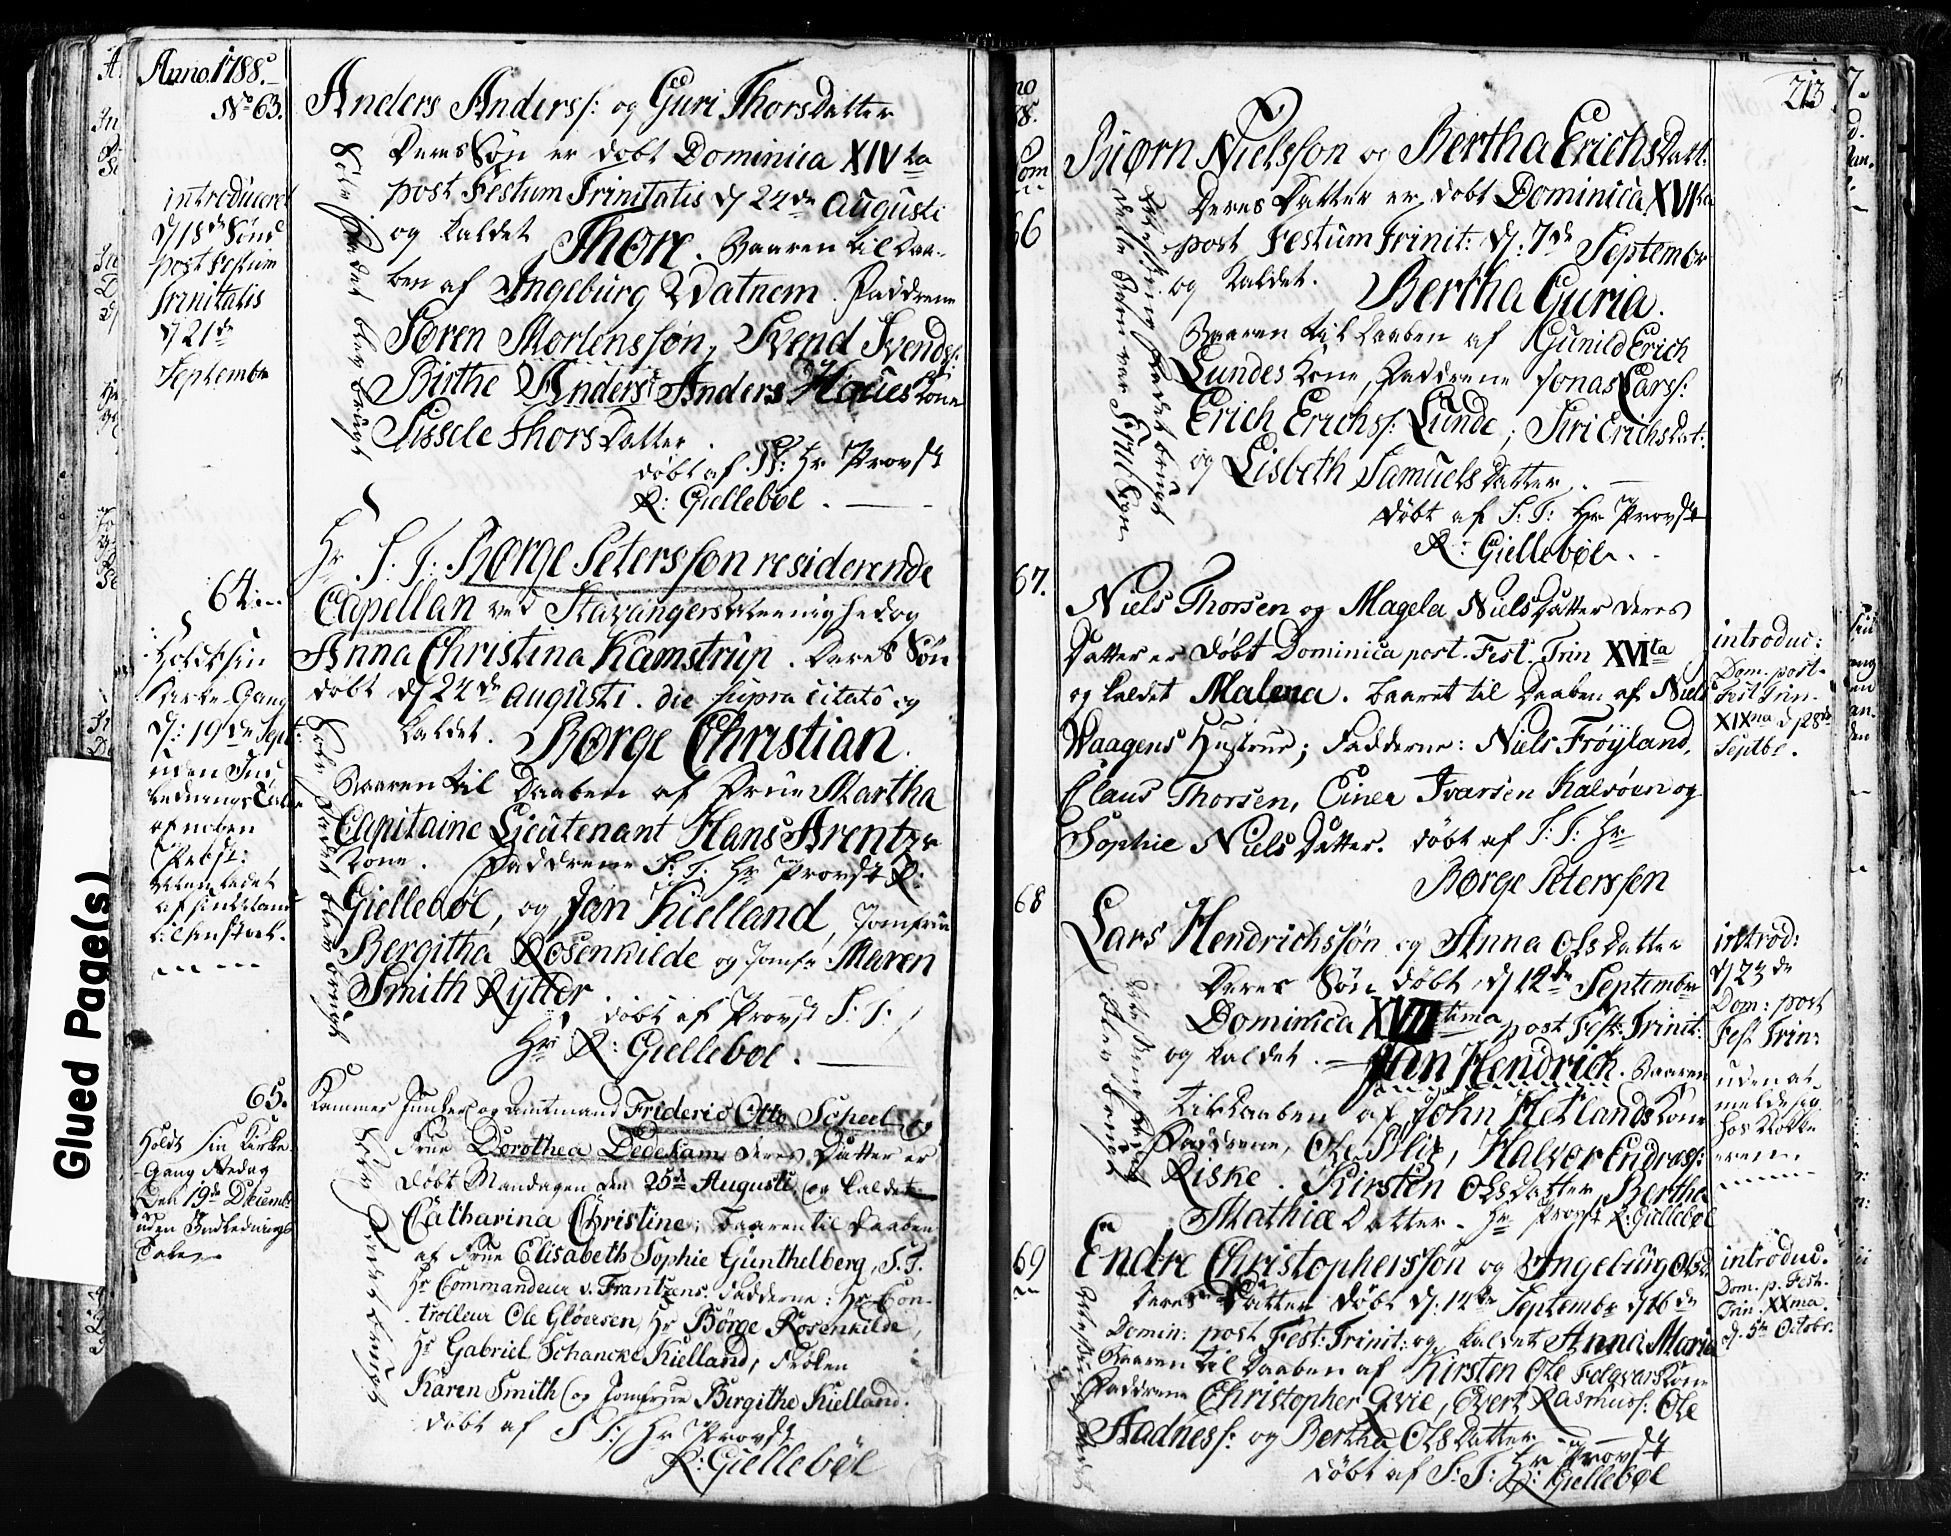 Anno. 1788.
No 63.
Anders Anders∫: og Guri Thorsdatter
Deres Søn er døbt Dominica XIVta
post Festum Trinitatis d 24de Augusti
og kaldet Thore. Baaren til Daa-
ben af Ingeburg Watnem. Fadderne
Søren Mortenssøn, Svend Svends∫:
Birthe Anders: Anders Haues Kone
Sissele Thors Datter.
døbt af S: T: Hr Provst
R: Giellebøl.
introduceret
d 18de Sønd
post Festum
Trinitatis
d 21de
Septembr
64.
Hr S. T. Børge Petersson residerende
Capellan ved Stavangers Meenighed og
Anna Christina Kamstrup. Deres Søn
døbt d 24de augusti. die supra citato og
kaldet. Børge Christian.
Baaren til Daaben af Frue Martha
Capitaine Lieutenant Hans Arentz
Kone. Fadderne S. T. Hr Provst R:
Giellebøl, og Jan Kielland, Jomfrue
Bergitha Rosenkilde og Jomfr Maren
Smith Rytter. døbt af Provst S. T:
Hr R: Giellebøl.
Holdt sin
Kirke-Gang
d: 19de Sept:
uden Ind-
lednings Tale
65.
Kammer Junker og Amtmand Frideric Otto Scheel og
Frue Dorothea Dedekam deres Datter er
døbt Mandagen den 25de Augusti, og kaldet
Catharina Christine; baaren til Daaben
af Frue Elisabeth Sophie Günthelberg, S. T.
Hr Commandeur v. Frantzens. Fadderne: Hr Con-
trolleur Ole Gløersen, Hr Børge Rosenkilde,
Hr Gabriel Schancke Kielland, Frøken
Karen Smith og Jomfrue Birgithe Kielland.
døbt af S T: Hr Provst
R: Giellebøl
Holdt sin Kirke-
Gang Fredag
den 19de Decembr
uden Indlednings
Tale
Glued Page(s)
213
66
Biørn Nielsson og Bertha Erichs Datt:
Deres Datter er døbt Dominica XVIta
post Festum Trinit: d. 7de Septembr
og kaldet. Bertha Guria.
Baaren til Daaben af Gunild Erich
Lundes Kone, Fadderne Jonas Lars∫:
Erich Erichs∫: Lunde, Siri Erichsdat:
og Lisbeth Samuels Datter.
døbt af S: T: Hr Provst
R: Giellebøl.
67.
Niels Thorsen og Magela Niels Datter deres
Datter er døbt Dominica post. Fest. Trin XVIta
og kaldet Malena. baaret til Daaben af Niels
Waagens Hustrue; Fadderne: Niels Frøyland,
Claus Thorsen, Einer Ivarsen Kalvøen og
Sophie Niels Datter. døbt af S: T: Hr
Børge Peterssen
introduc:
Dom: post.
Fest Trin.
XIXna d 28de
Septbr.
68
Lars Hendrichssøn og Anna Olsdatter
Deres Søn døbt d 14de Septembr
Dominica XVIItima post Fest: Trinit:
og kaldet. Jan Hendrich. Baaren
til Daaben af John Hetlands Kone
Fadderne, Ole Blix, Halvor Endres∫:
Riske. Kirsten Olsdatter, Berthe
Mathiæ Datter. Hr Provst R: Giellebøl
introd:
d 23de
Dom: post
Fest Trin:
uden at
melde sig
hos Klokke
ren.
69
Endre Christopherssøn og Ingeburg Olsd:
Deres Datter døbt d: 14de Septembr d 16de
Domin: post Fest: Trinit: og kaldet Anna Maria
Baaren til Daaben af Kirsten Ole Folqvars Kone
Fadderne Christopher Qvie, Evert Rasmus∫: Ole
Aadnes∫: og Bertha Olsdatter.
døbt af S: T: Hr Provst
R: Giellebøl
introduc.
Dom. p. Fest.
Trin. XXma.
d. 5te Octobr.